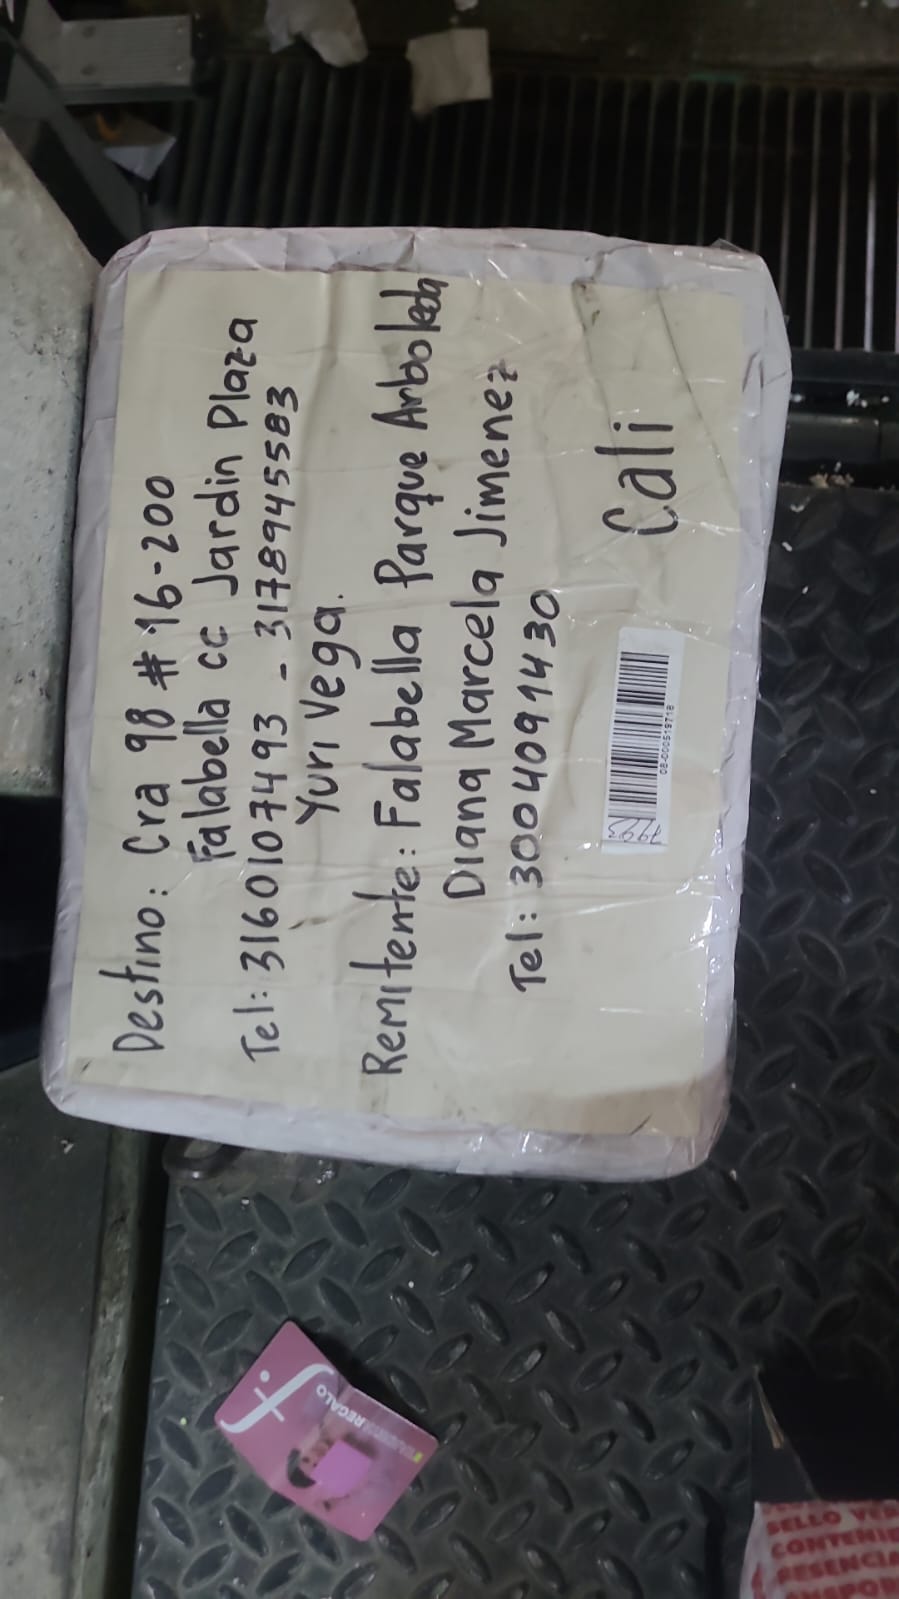 Destino: Cra 98 # 16-200
Falabella cc Jardin Plaza
Tel: 3160107493 - 3178945583
Yuri Vega.
Remitente: Falabella Parque Arboleda
Diana Marcela Jimenez
Tel: 3004091430
Cali
08-000519718
f.
REGALO
SELLO
CONTENI